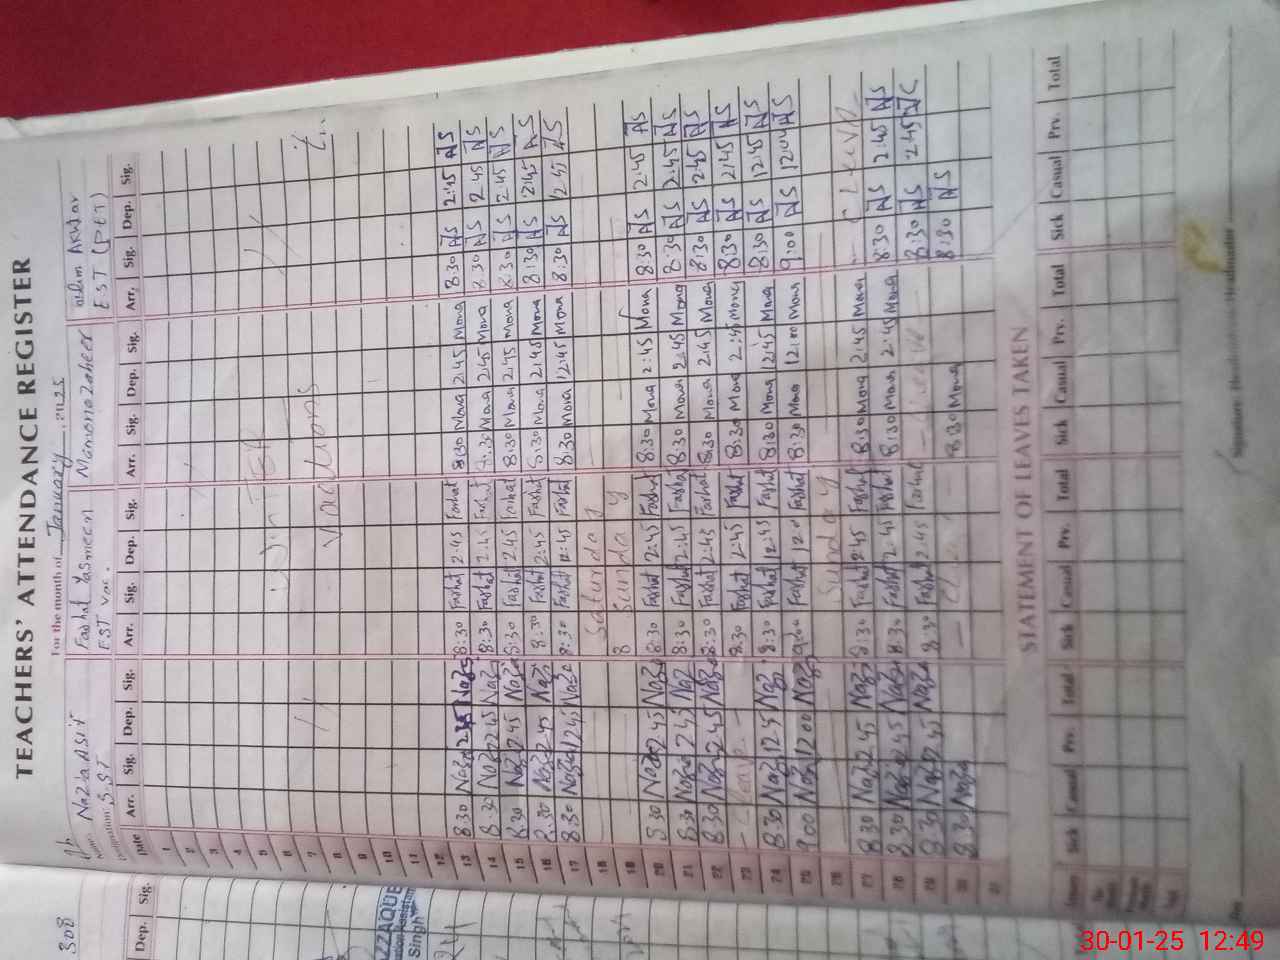 308
TEACHERS' ATTENDANCE REGISTER
For the month of January 2025
Nazia Asif
S.S.T
Farhat Yasmeen
EST Voc.
Mamona Zaheer
Akhtar
EST (PET)
Date Arr. Sig. Dep. Sig. Arr. Sig. Dep. Sig. Arr. Sig. Dep. Sig. Arr. Sig. Dep. Sig.
1
2
3
4
5
6
7
8
9
10
11
12
WINTER
Vacations
13 8.30 Nazia 2.45 Nazia 8:30 Farhat 2.45 Farhat 8:30 Mona 2.45 Mona 8:30 AS 2:45 AS
14 8.30 Nazia 2.45 Nazia 8:30 Farhat 2.45 Farhat 8:30 Mona 2:45 Mona 8.30 AS 2.45 AS
15 8.30 Nazia 2.45 Nazia 8:30 Farhat 2.45 Farhat 8:30 Mona 2.45 Mona 8.30 AS 2.45 AS
16 8.30 Nazia 2.45 Nazia 8:30 Farhat 2:45 Farhat 8:30 Mona 2:45 Mona 8:30 AS 2:45 AS
17 8.30 Nazia 12.45 Nazia 8:30 Farhat 12:45 Farhat 8:30 Mona 12:45 Mona 8:30 AS 12.45 AS
18 Saturday
19 Sunday
20 8.30 Nazia 2.45 Nazia 8:30 Farhat 2:45 Farhat 8:30 Mona 2:45 Mona 8:30 AS 2:45 AS
21 8.30 Nazia 2.45 Nazia 8:30 Farhat 2.45 Farhat 8:30 Mona 2:45 Mona 8:30 AS 2:45 AS
22 8.30 Nazia 2.45 Nazia 8:30 Farhat 2:45 Farhat 8:30 Mona 2:45 Mona 8:30 AS 2:45 AS
23 Leave 8:30 Farhat 2:45 Farhat 8:30 Mona 2:45 Mona 8:30 AS 2:45 AS
24 8.30 Nazia 12.45 Nazia 8:30 Farhat 12:45 Farhat 8:30 Mona 12:45 Mona 8:30 AS 12:45 AS
25 9.00 Nazia 12.00 Nazia 9:00 Farhat 12:00 Farhat 8:30 Mona 12:00 Mona 9:00 AS 12:00 AS
26 Sunday
27 8.30 Nazia 2.45 Nazia 8:30 Farhat 2:45 Farhat 8:30 Mona 2:45 Mona C Leave
28 8.30 Nazia 2.45 Nazia 8:30 Farhat 2:45 Farhat 8:30 Mona 2:45 Mona 8:30 AS 2:45 AS
29 8.30 Nazia 2.45 Nazia 8:30 Farhat 2.45 Farhat 8:30 AS 2:45 AS
30 8.30 Nazia 8:30 Mona 8:30 AS
31
STATEMENT OF LEAVES TAKEN
Sick Casual Prv. Total Sick Casual Prv. Total Sick Casual Prv. Total Sick Casual Prv. Total
Dep. Sig.
Singh
30-01-25 12:49